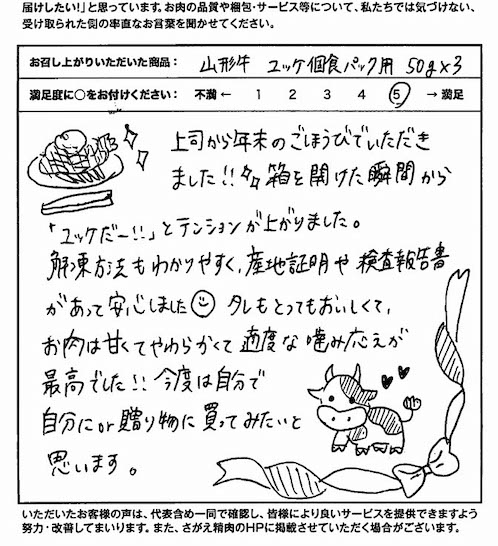 届けしたい!」と思っています。お肉の品質や梱包・サービス等について、私たちでは気づけない、
受け取られた側の率直なお言葉を聞かせてください。
お召し上がりいただいた商品： 山形牛 ユッケ個食パック用 50g×3
満足度に○をお付けください： 不満 ← 1 2 3 4 5 → 満足
上司から年末のごほうびでいただき
ました!! 箱を開けた瞬間から
「ユッケだー!!」とテンションが上がりました。
解凍方法もわかりやすく、産地証明や検査報告書
があって安心しました タレもとってもおいしくて、
お肉は甘くてやわらかくて適度な噛み応えが
最高でした!! 今度は自分で
自分にor贈り物に買ってみたいと
思います。
いただいたお客様の声は、代表含め一同で確認し、皆様により良いサービスを提供できますよう
努力・改善してまいります。また、さがえ精肉のHPに掲載させていただく場合がございます。